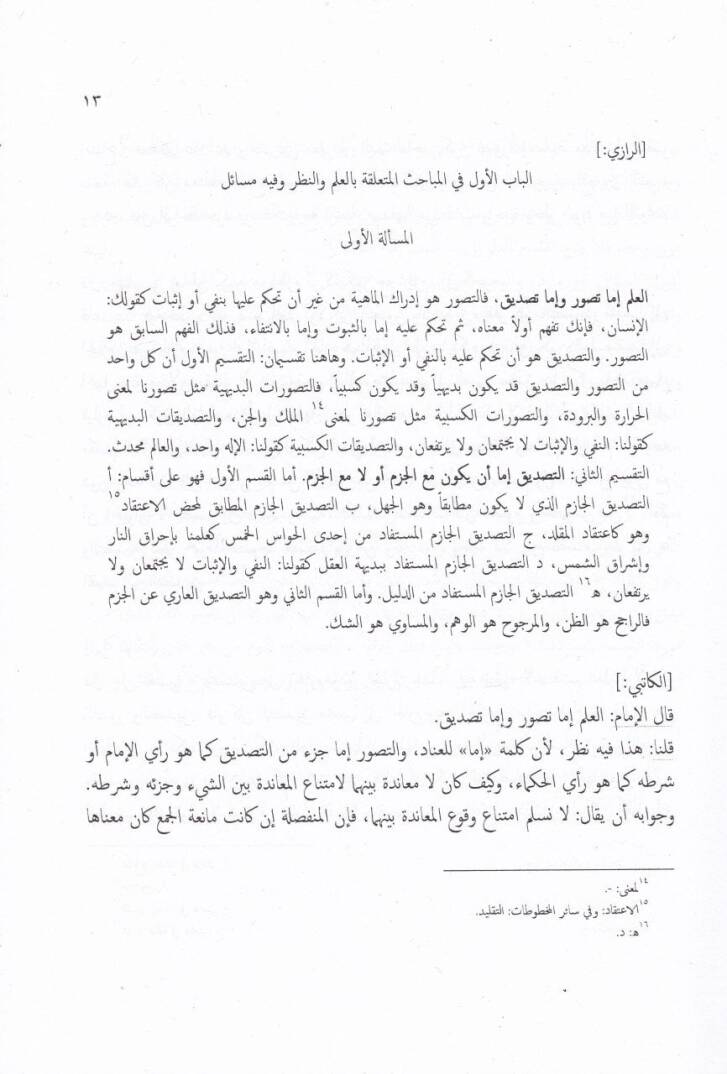 ١٣
[الرازي:]
الباب الأول في المباحث المتعلقة بالعلم والنظر وفيه مسائل
المسألة الأولى
العلم إما تصور وإما تصديق، فالتصور هو إدراك الماهية من غير أن تحكم عليها بنفي أو إثبات كقولك:
الإنسان، فإنك تفهم أولاً معناه، ثم تحكم عليه إما بالثبوت وإما بالانتفاء، فذلك الفهم السابق هو
التصور. والتصديق هو أن تحكم عليه بالنفي أو الإثبات. وهاهنا تقسيمان: التقسيم الأول أن كل واحد
من التصور والتصديق قد يكون بديهياً وقد يكون كسبياً، فالتصورات البديهية مثل تصورنا لمعنى
الحرارة والبرودة، والتصورات الكسبية مثل تصورنا لمعنى١٤ الملك والجن، والتصديقات البديهية
كقولنا: النفي والإثبات لا يجتمعان ولا يرتفعان، والتصديقات الكسبية كقولنا: الإله واحد، والعالم محدث.
التقسيم الثاني: التصديق إما أن يكون مع الجزم أو لا مع الجزم. أما القسم الأول فهو على أقسام: أ
التصديق الجازم الذي لا يكون مطابقاً وهو الجهل، ب التصديق الجازم المطابق لمحض الاعتقاد١٥
وهو كاعتقاد المقلد، ج التصديق الجازم المستفاد من إحدى الحواس الخمس كعلمنا بإحراق النار
وإشراق الشمس، د التصديق الجازم المستفاد ببديهة العقل كقولنا: النفي والإثبات لا يجتمعان ولا
يرتفعان، ه١٦ التصديق الجازم المستفاد من الدليل. وأما القسم الثاني وهو التصديق العاري عن الجزم
فالراجح هو الظن، والمرجوح هو الوهم، والمساوي هو الشك.
[الكاتبي:]
قال الإمام: العلم إما تصور وإما تصديق.
قلنا: هذا فيه نظر، لأن كلمة «إما» للعناد، والتصور إما جزء من التصديق كما هو رأي الإمام أو
شرطه كما هو رأي الحكماء، وكيف كان لا معاندة بينهما لامتناع المعاندة بين الشيء وجزئه وشرطه.
وجوابه أن يقال: لا نسلم امتناع وقوع المعاندة بينهما، فإن المنفصلة إن كانت مانعة الجمع كان معناها
١٤ لمعنى: -.
١٥ الاعتقاد: وفي سائر المخطوطات: التقليد.
١٦ ه: د.